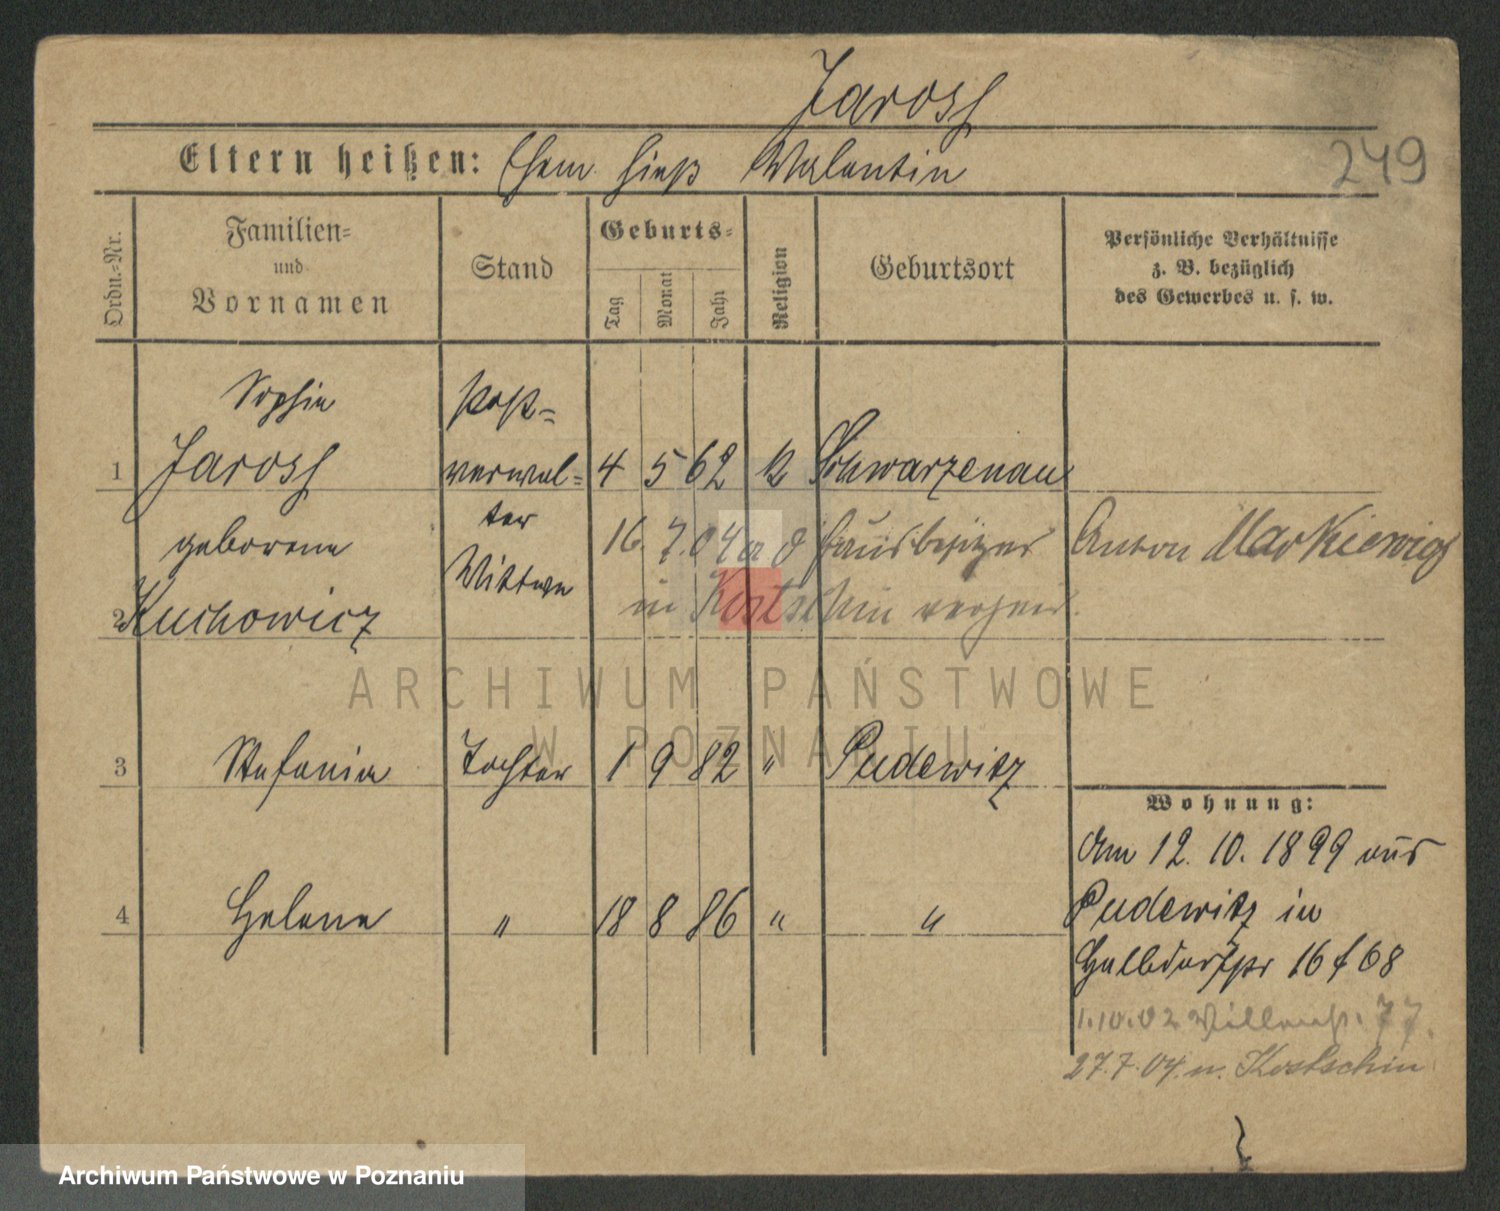 Jarosch
249
Eltern heißen: Ehem. hieß Valentin
Ordn.-Nr.
Familien-
und
Vornamen
Stand
Geburts-
Tag
Monat
Jahr
Religion
Geburtsort
Persönliche Verhältnisse
z. B. bezüglich
des Gewerbes u. s. w.
Sophie Post-
1 Jarosch verwal- 4 5 62 k Schwarzenau
geborene ter 16. 7. 04 Hausbesitzer Anton Markiewicz
2 Kuchowicz Wittwe in Kostschin
3 Stefania Tochter 1 9 82 " Pudewitz
4 Helene " 18 8 86 " "
Wohnung:
Am 12. 10. 1899 aus
Pudewitz in
Halbdorfstr 16 f 68
1.10.02 77.
27.7.04. n. Kostschin
ARCHIWUM PAŃSTWOWE
W POZNANIU
Archiwum Państwowe w Poznaniu